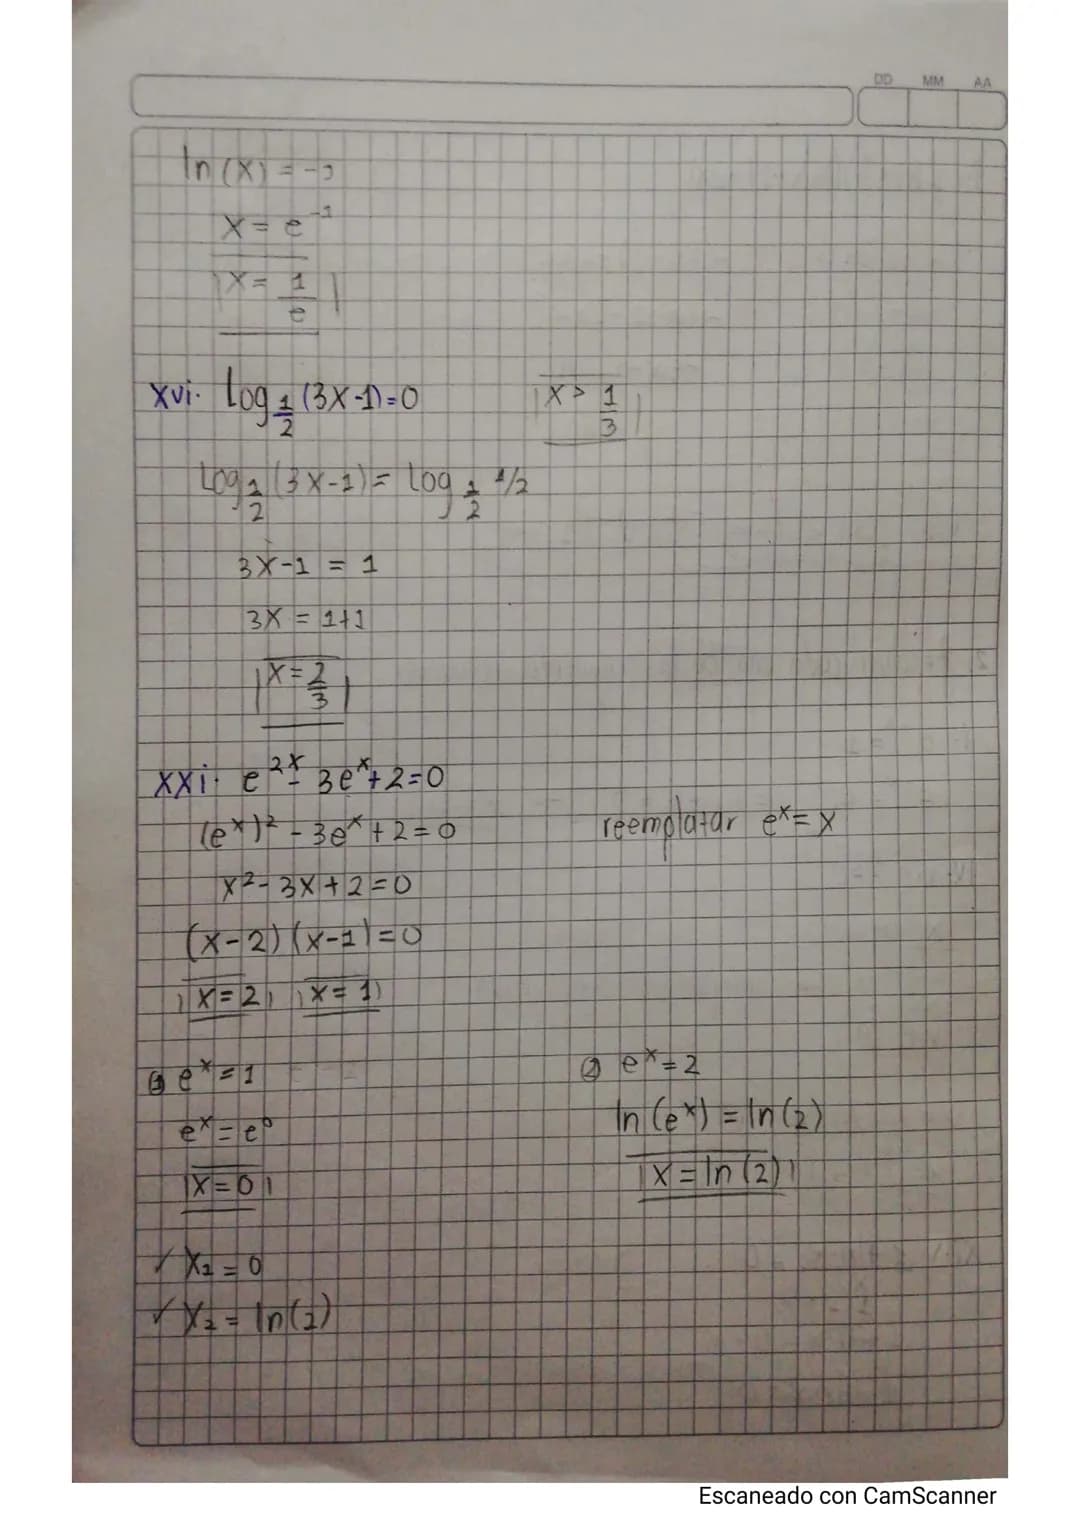 DD MM AA
ln(x) = -1
x = e^-1
x = 1/e
xvi. log 1/2 (3x-1)=0 x > 1/3
log 1/2 (3x-1) = log 1/2 1/2
3x-1 = 1
3x = 1+1
x = 2/3
xxi. e^2x - 3e^x + 2=0
(e^x)^2 - 3e^x + 2 = 0 reemplatar e^x = x
x^2 - 3x + 2 = 0
(x-2)(x-1)=0
x=2 x=1
① e^x = 1 ② e^x = 2
e^x = e^0 ln(e^x) = ln(2)
x=0 x = ln(2)
✓ x1 = 0
✓ x2 = ln(2)
Escaneado con CamScanner